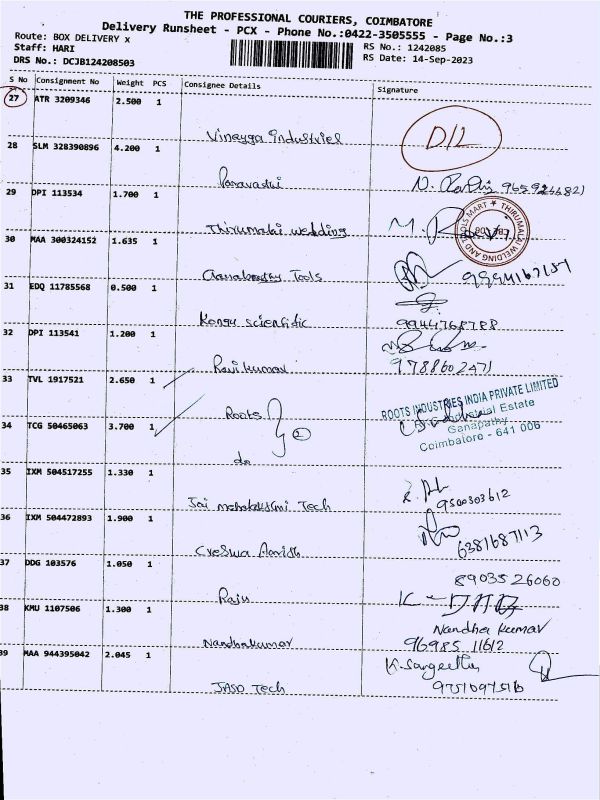 THE PROFESSIONAL COURIERS, COIMBATORE
Delivery Runsheet - PCX - Phone No.:0422-3505555 - Page No.:3
Route: BOX DELIVERY x
RS No.: 1242085
Staff: HARI
RS Date: 14-Sep-2023
DRS No.: DCJB124208503
S No Consignment No Weight PCS Consignee Details Signature
27 ATR 3209346 2.500 1
Vinayga Industries D/L
28 SLM 328390896 4.200 1
29 DPI 113534 1.700 1
Thirumalai wedding
THIRUMALAI WELDING AND TOOLS MART
30 MAA 300324152 1.635 1
Tools
31 EDQ 11785568 0.500 1
Kongu scientific 9944768788
32 DPI 113541 1.200 1
Ravikumar 9788602471
33 TVL 1917521 2.650 1
Roots
ROOTS INDUSTRIES INDIA PRIVATE LIMITED
Industrial Estate
Ganapathy
Coimbatore - 641 006
34 TCG 50465063 3.700 1
2
do
35 IXM 504517255 1.330 1
Jai mahalakshmi Tech 9500303612
36 IXM 504472893 1.900 1
6381687113
37 DDG 103576 1.050 1
8903526060
Raju
38 KMU 1107506 1.300 1
Nandha Kumar
Nandhakumar 96985 11612
39 MAA 944395042 2.045 1
K. Sangeetha
Tech